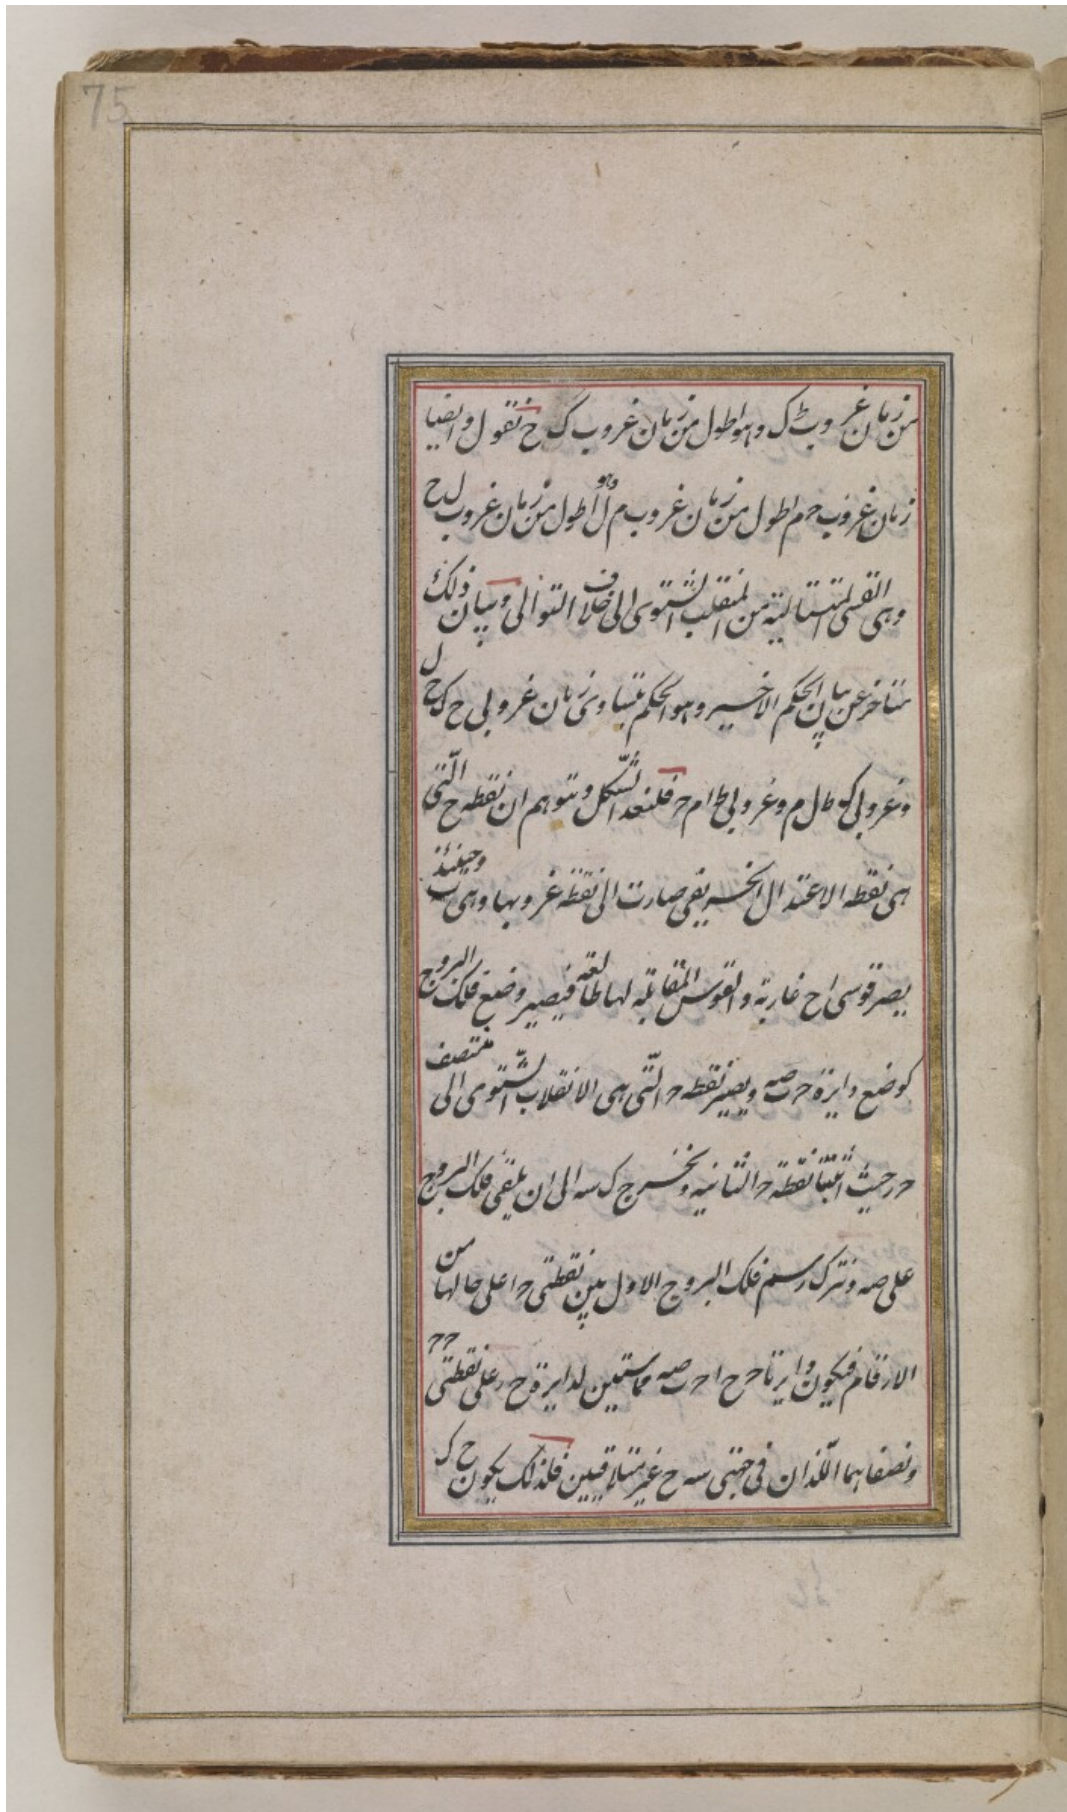 75
من زمان غروب ط ك وهو اطول من زمان غروب ك ح فنقول وايضا
زمان غروب ح م اطول من زمان غروب م ل وهو اطول من زمان غروب ل ح
وهى القسى المتتالية من المنقلب الشتوى الى خلاف التوالى وبيان ذلك
متاخر عن بيان الحكم الاخير وهو الحكم بتساوى زمان غروبى ح ك ح ل
وغروبى ك ط ل م وغروبى ط ا م ح فلنعد الشكل ونتوهم ان نقطه ح التى
هى نقطه الاعتدال الخريفى صارت الى نقطه غروبها وهى ب وحينئذ
يصير قوسى ا ح غاربة والقوس المقابلة لها طالعة فيصير وضع فلك البروج
كوضع دايرة ح ب صه ويصير نقطه ح التى هى الانقلاب الشتوى الى منتصف
ح ر حيث اثبتنا نقطة ح الثانيه ونخرج ك سه الى ان يلقى فلك البروج
على صه ونترك رسم فلك البروج الاول بين نقطتى ح ا على حالها من
الارقام فيكون دايرتا ح ح ا ح ب صه مماستين لدايرة ح ر على نقطتى ح ح
ونصفاهما اللذان فى جهتى سه ح غير متلاقيين فلذلك يكون ح ك